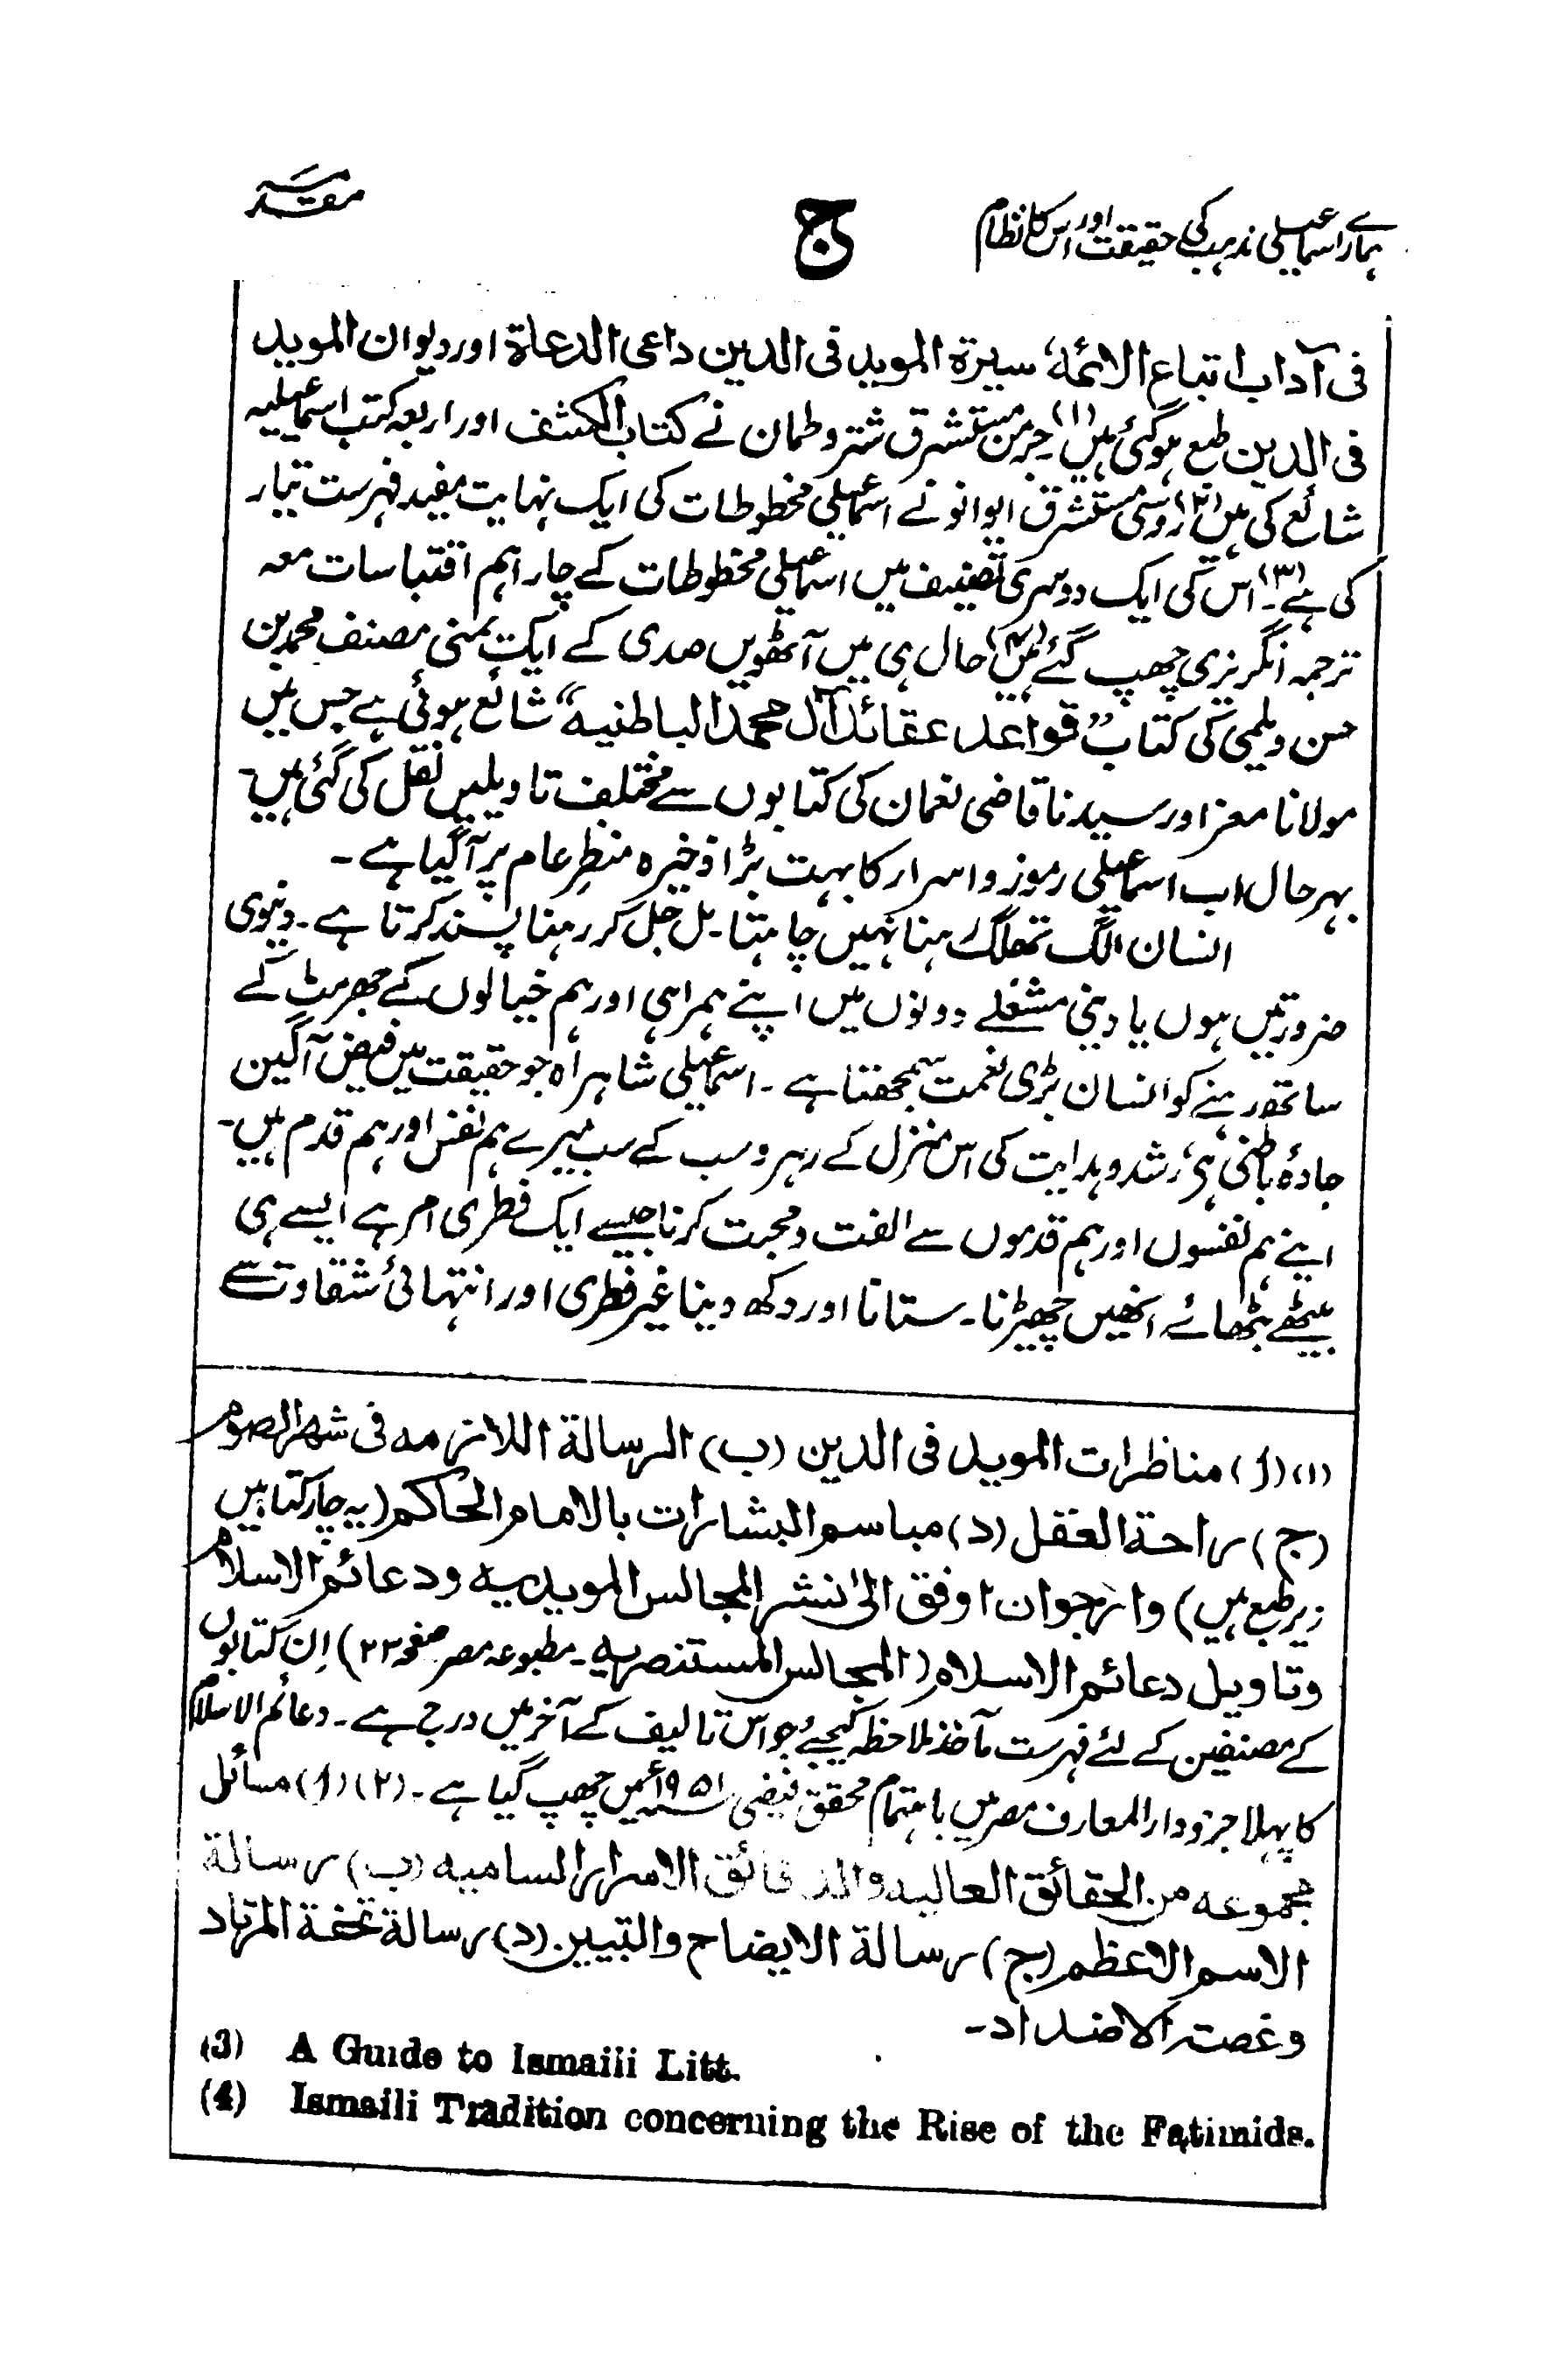 ہمارے اسماعیلی مذہب کی حقیقت اور اس کا نظام
ج
مقدمہ
فی آداب اتباع الائمۃ، سیرۃ الموید فی الدین داعی الدعاۃ اور دیوان الموید
فی الدین طبع ہو گئی ہیں (۱) جرمن مستشرق شتروطمان نے کتاب الکشف اور اربعہ کتب اسماعیلیہ
شائع کی ہیں (۲) روسی مستشرق ایوانو نے اسماعیلی مخطوطات کی ایک نہایت مفید فہرست تیار
کی ہے (۳)۔ اس کی ایک دوسری تصنیف میں اسماعیلی مخطوطات کے چار اہم اقتباسات معہ
ترجمہ انگریزی چھپ گئے ہیں (۴) حال ہی میں آٹھویں صدی کے ایک یمنی مصنف محمد بن
حسن دیلمی کی کتاب ”قواعد عقائد آل محمد الباطنیہ“ شائع ہوئی ہے جس میں
مولانا معز اور سیدنا قاضی نعمان کی کتابوں سے مختلف تاویلیں نقل کی گئی ہیں۔
بہرحال اب اسماعیلی رموز و اسرار کا بہت بڑا ذخیرہ منظرِ عام پر آ گیا ہے۔
انسان الگ تھلگ رہنا نہیں چاہتا۔ مل جل کر رہنا پسند کرتا ہے۔ دنیوی
ضرورتیں ہوں یا دینی مشغلے دونوں میں اپنے ہمراہی اور ہم خیالوں کے جھرمٹ کے
ساتھ رہنے کو انسان بڑی نعمت سمجھتا ہے۔ اسماعیلی شاہراہ جو حقیقت میں فیض آگین
جادۂ باطنی ہی، رشد و ہدایت کی اس منزل کے رہرو سب کے سب میرے ہم نفس اور ہم قدم ہیں۔
اپنے ہم نفسوں اور ہم قدموں سے الفت و محبت کرنا جیسے ایک فطری امر ہے ایسے ہی
بیٹھے بٹھائے انھیں چھیڑنا۔ ستانا اور دکھ دینا غیر فطری اور انتہائی شقاوت سے
(۱) (ا) مناظرات الموید فی الدین (ب) الرسالۃ اللازمہ فی شھر الصوم
(ج) راحۃ العقل (د) مباسم البشارات بالامام الحاکم (یہ چار کتابیں
زیر طبع ہیں) وارجوان اوفق الیٰ نشر المجالس المویدیہ ودعائم الاسلام
وتاویل دعائم الاسلام (المجالس المستنصریہ۔ مطبوعہ مصر صفحہ ۲۲) اِن کتابوں
کے مصنفین کے لئے فہرست مآخذ ملاحظہ کیجیے جو اس تالیف کے آخر میں درج ہے۔ دعائم الاسلام
کا پہلا جزو دار المعارف مصر میں باہتمام محقق فیضی ۱۹۵۱ء میں چھپ گیا ہے۔ (۲) (ا) مسائل
مجموعہ من الحقائق العالیہ والدقائق الاسرار السامیہ (ب) رسالۃ
الاسم الاعظم (ج) رسالۃ الایضاح والتبیین (د) رسالۃ تحفۃ المرتاد
وغصۃ الاضداد۔
(3) A Guide to Ismaili Litt.
(4) Ismaili Tradition concerning the Rise of the Fatimids.